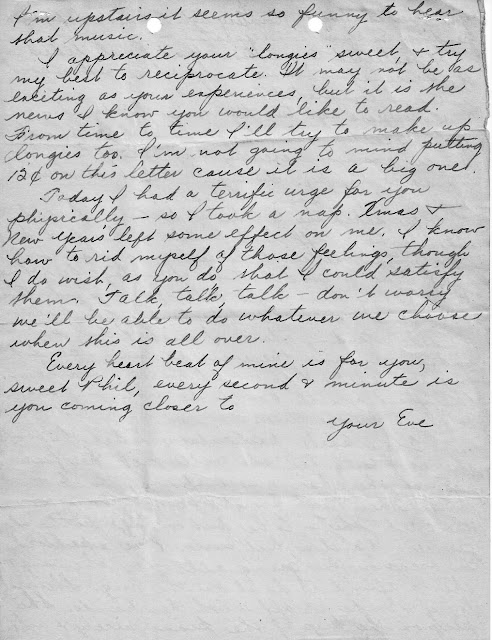 I'm upstairs it seems so funny to hear
that music.
I appreciate your "longies" sweet, & try
my best to reciprocate. It may not be as
exciting as your experiences, but it is the
news I know you would like to read.
From time to time I'll try to make up
longies too. I'm not going to mind putting
12¢ on this letter cause it is a big one.
Today I had a terrific urge for you
phiyscally – so I took a nap. Xmas &
New Years left some effect on me. I know
how to rid myself of those feelings, though
I do wish, as you do, that I could satisfy
them. Talk, talk, talk – don't worry
we'll be able to do whatever we choose
when this is all over.
Every heart beat of mine is for you,
sweet Phil, every second & minute is
you coming closer to
Your Eve